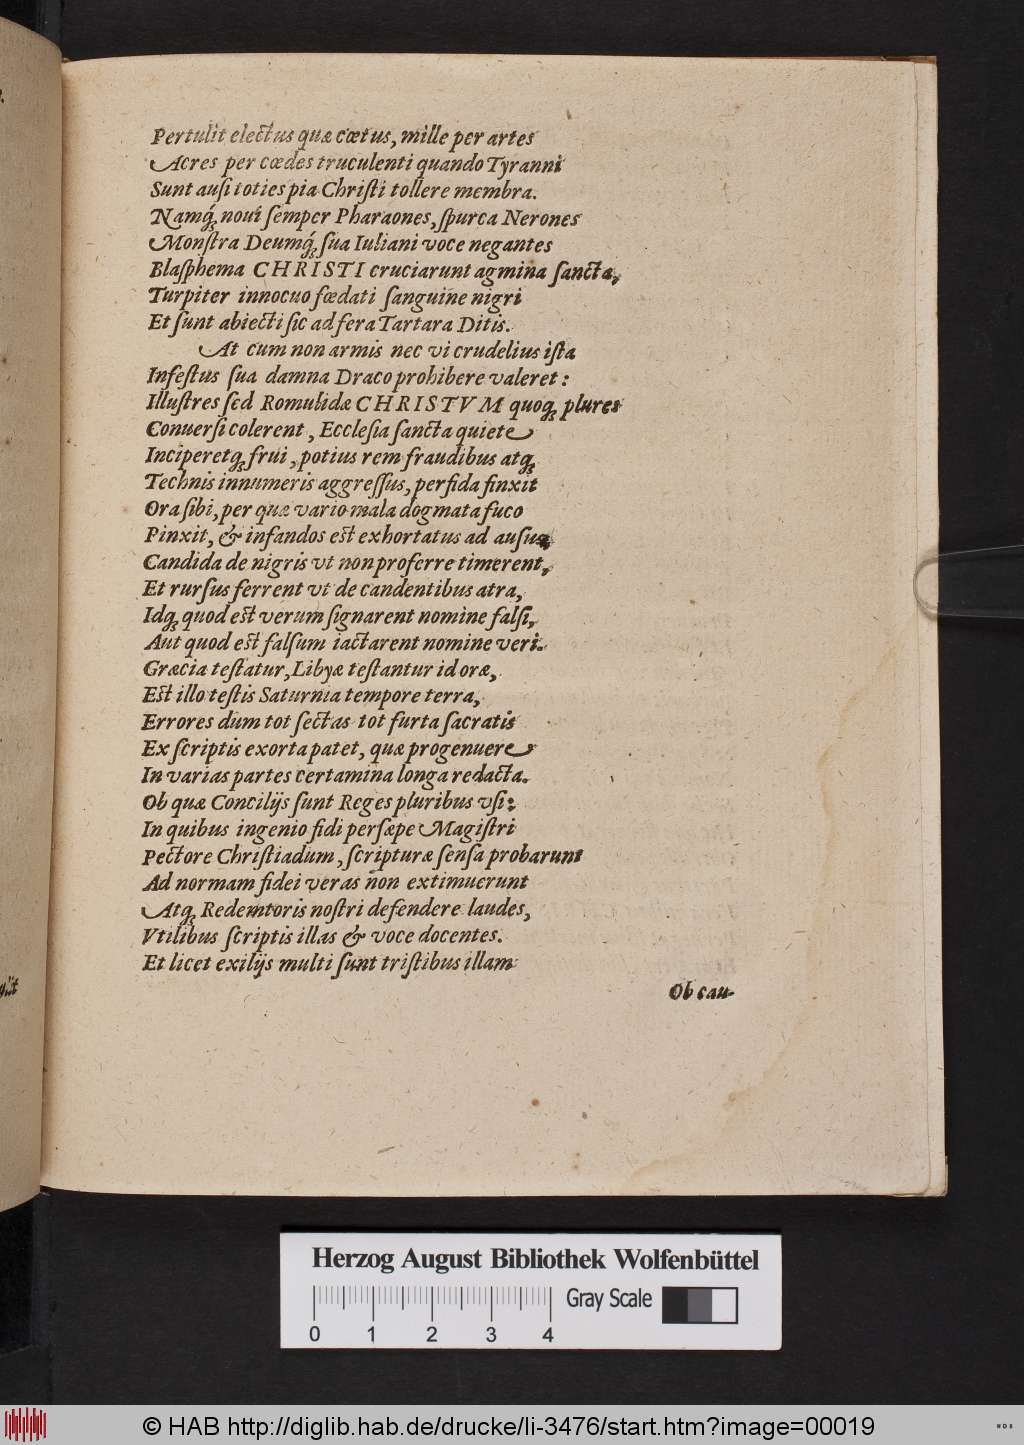 Pertulit electus quæ cœtus, mille per artes
Acres per cœdes truculenti quando Tyranni
Sunt ausi toties pia Christi tollere membra.
Namq́; noui semper Pharaones, spurca Nerones
Monstra Deumq́; sua Iuliani voce negantes
Blasphema CHRISTI cruciarunt agmina sancta,
Turpiter innocuo fœdati sanguine nigri
Et sunt abiecti sic ad fera Tartara Ditis.
At cum non armis nec vi crudelius ista
Infestus sua damna Draco prohibere valeret:
Illustres sed Romulidæ CHRISTVM quoq; plures
Conuersi colerent, Ecclesia sancta quiete
Inciperetq; frui, potius rem fraudibus atq;
Technis innumeris aggressus, perfida finxit
Ora sibi, per quæ vario mala dogmata fuco
Pinxit, & infandos est exhortatus ad ausus,
Candida de nigris vt non proferre timerent,
Et rursus ferrent vt de candentibus atra,
Idq; quod est verum signarent nomine falsi,
Aut quod est falsum iactarent nomine veri.
Græcia testatur, Libyæ testantur id oræ,
Est illo testis Saturnia tempore terra,
Errores dum tot sectas tot furta sacratis
Ex scriptis exorta patet, quæ progenuere
In varias partes certamina longa redacta.
Ob quæ Concilijs sunt Reges pluribus vsi:
In quibus ingenio fidi persæpe Magistri
Pectore Christiadum, scripturæ sensa probarunt
Ad normam fidei veras non extimuerunt
Atq; Redemtoris nostri defendere laudes,
Vtilibus scriptis illas & voce docentes.
Et licet exilijs multi sunt tristibus illam
Ob cau-
Herzog August Bibliothek Wolfenbüttel
Gray Scale
0 1 2 3 4
© HAB http://diglib.hab.de/drucke/li-3476/start.htm?image=00019